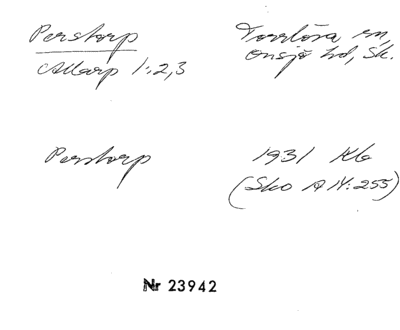 Perstorp
Torrlösa sn,
Allarp 1:2,3
Onsjö hd, Sk.
Perstorp
1931 Kb
(Sko A IV:255)
Nr 23942